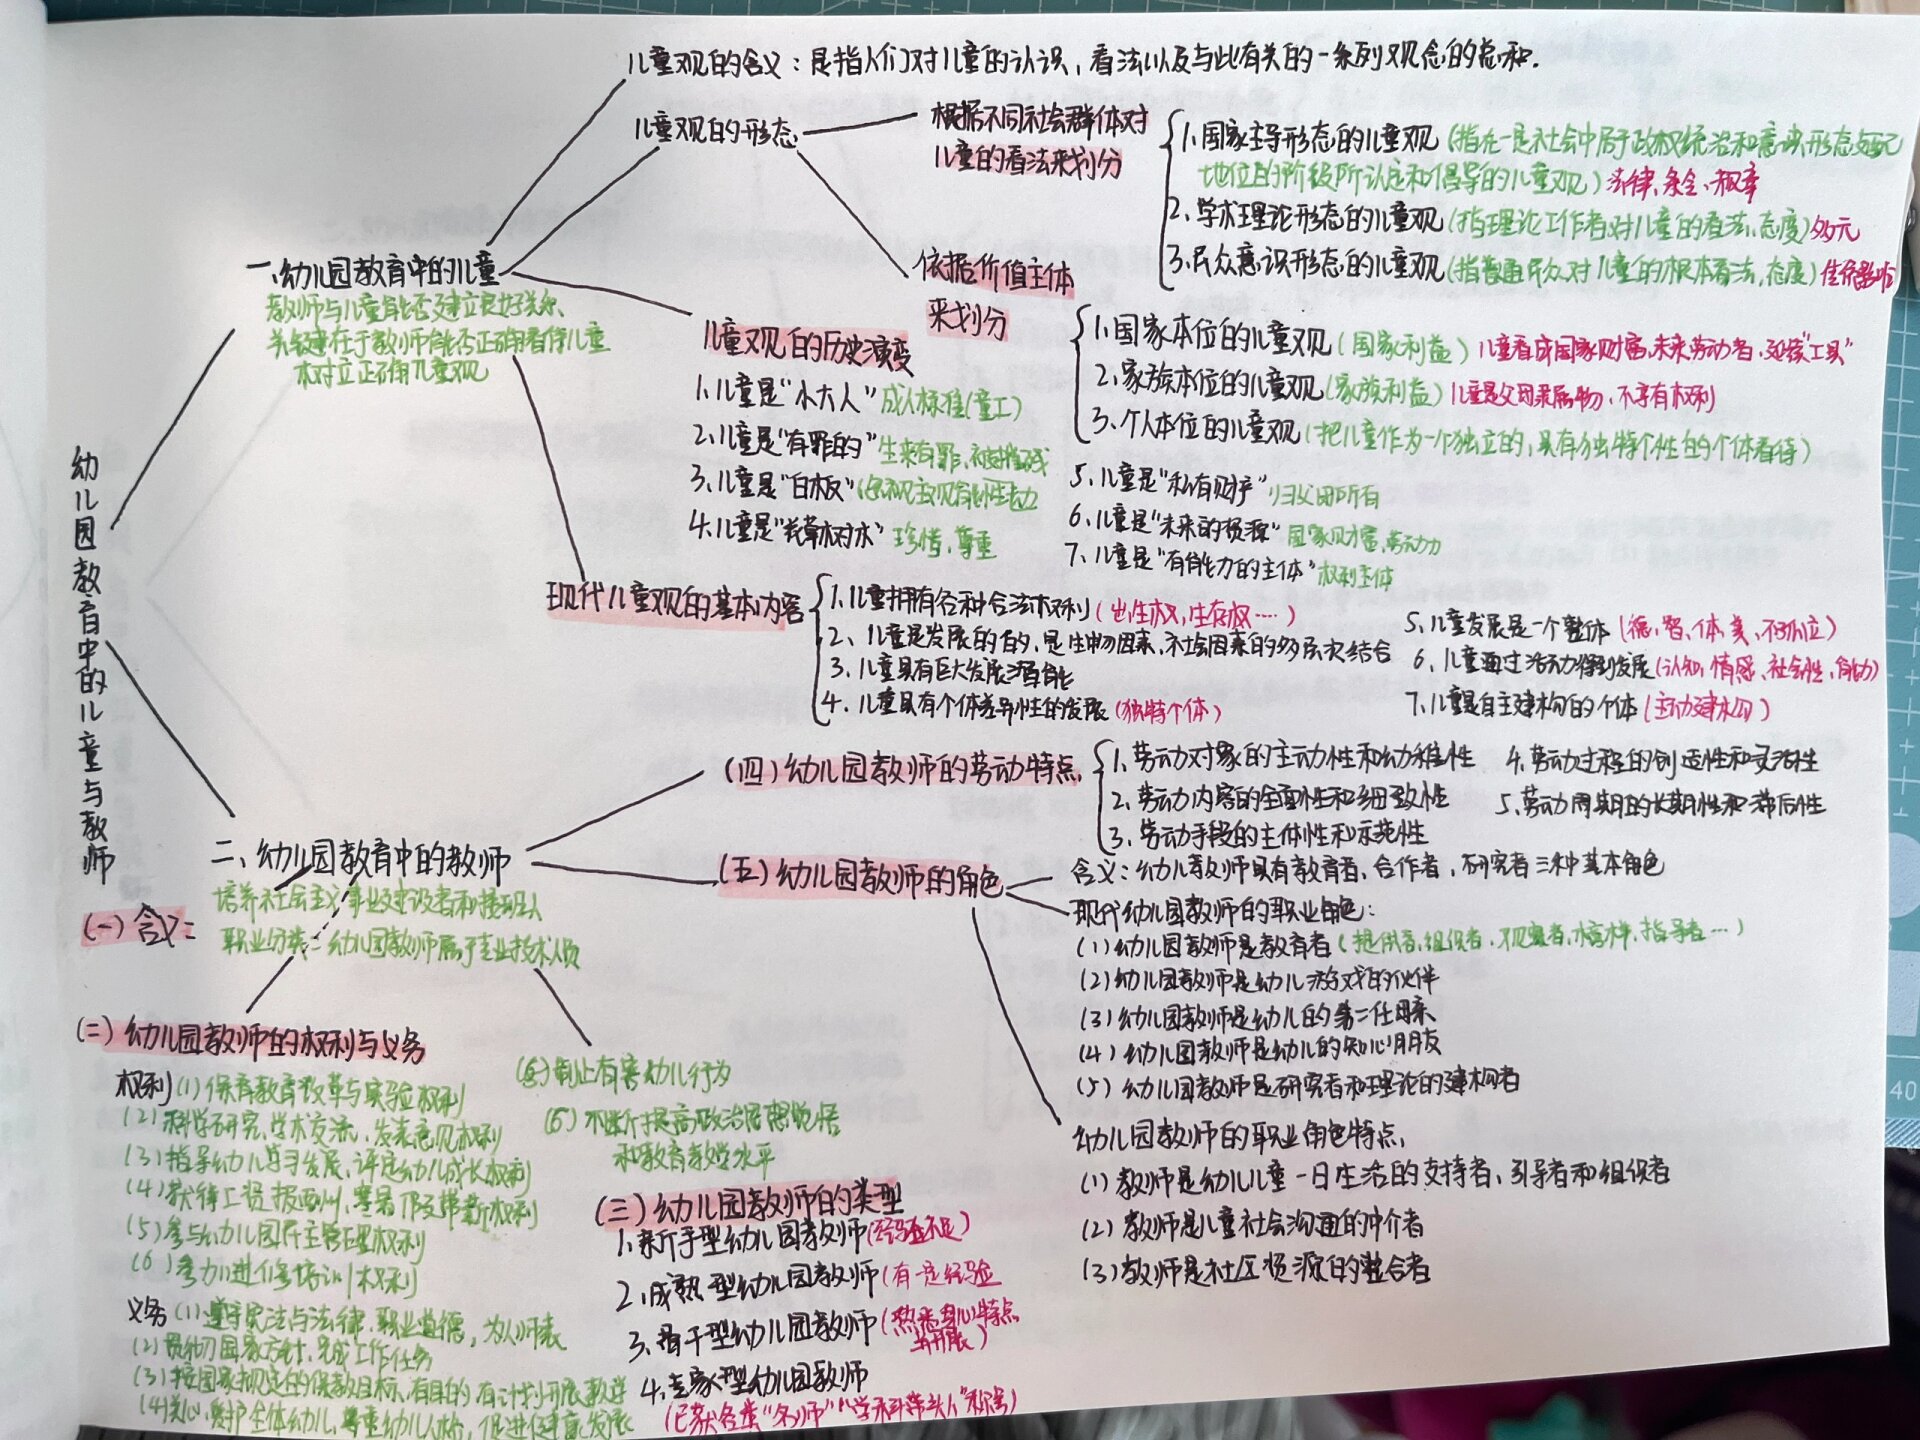 幼儿园教育中的儿童与教师
一、幼儿园教育中的儿童
教师与儿童能否建立良好关系、
关键在于教师能否正确看待儿童
树立正确儿童观
儿童观的含义：是指人们对儿童的认识，看法以及与此有关的一系列观念的总和.
儿童观的形态
根据不同社会群体对
儿童的看法来划分
1.国家主导形态的儿童观（指在一定社会中居于政权统治和意识形态支配
地位的阶级所认定和倡导的儿童观）法律、条令、规章
2.学术理论形态的儿童观（指理论工作者对儿童的看法、态度）多元
3.民众意识形态的儿童观（指普通民众对儿童的根本看法、态度）
依据价值主体
来划分
1.国家本位的儿童观（国家利益）儿童看成国家财富、未来劳动者、延续“工具”
2.家族本位的儿童观（家族利益）儿童是父母隶属物、不享有权利
3.个人本位的儿童观（把儿童作为一个独立的，具有独特个性的个体看待）
儿童观的历史演变
1.儿童是“小大人” 成人标准（童工）
2.儿童是“有罪的” 生来有罪、被摧残
3.儿童是“白板”（忽视主观能动性
4.儿童是“花草树木” 珍惜、尊重
5.儿童是“私有财产” 归父母所有
6.儿童是“未来的资源” 国家财富、劳动力
7.儿童是“有能力的主体” 权利主体
现代儿童观的基本内容
1.儿童拥有各种合法权利（出生权,生存权……）
2、儿童是发展的的，是生物因素、社会因素的多层次结合
3、儿童具有巨大发展潜能
4、儿童具有个体差异性的发展（独特个体）
5、儿童发展是一个整体（德、智、体、美、不孤立）
6、儿童通过活动得到发展（认知、情感、社会性、能力）
7、儿童是自主建构的个体（主动建构）
二、幼儿园教育中的教师
(一)含义：
培养社会主义事业建设者和接班人
职业分类：幼儿园教师属于专业技术人员
(二)幼儿园教师的权利与义务
权利(1)保育教育改革与实验权利
(2)科学研究、学术交流、发表意见权利
(3)指导幼儿学习发展、评定幼儿成长权利
(4)获得工资报酬、寒暑假及带薪休权利
(5)参与幼儿园民主管理权利
(6)参加进修培训权利
义务(1)遵守宪法与法律、职业道德，为人师表
(2)贯彻国家方针、完成工作任务
(3)按国家规定的保教目标、有目的有计划开展教学
(4)关心、爱护全体幼儿，尊重幼儿人格，促进健康发展
(5)制止有害幼儿行为
(6)不断提高政治思想觉悟
和教育教学水平
(三)幼儿园教师的类型
1.新手型幼儿园教师(经验不足)
2.成熟型幼儿园教师(有一定经验
3.骨干型幼儿园教师(熟悉身心特点
并开展)
4.专家型幼儿园教师
(已获各类“名师”“学科带头人”称号)
(四)幼儿园教师的劳动特点
1.劳动对象的主动性和幼稚性
2.劳动内容的全面性和细致性
3.劳动手段的主体性和示范性
4.劳动过程的创造性和灵活性
5.劳动周期的长期性和滞后性
(五)幼儿园教师的角色
含义：幼儿教师具有教育者、合作者，研究者三种基本角色
现代幼儿园教师的职业角色：
(1)幼儿园教师是教育者（提供者、组织者、观察者、榜样、指导者…）
(2)幼儿园教师是幼儿游戏的伙伴
(3)幼儿园教师是幼儿的第二任母亲
(4)幼儿园教师是幼儿的知心朋友
(5)幼儿园教师是研究者和理论的建构者
幼儿园教师的职业角色特点
(1)教师是幼儿儿童一日生活的支持者、引导者和组织者
(2)教师是儿童社会沟通的中介者
(3)教师是社区资源的整合者
40